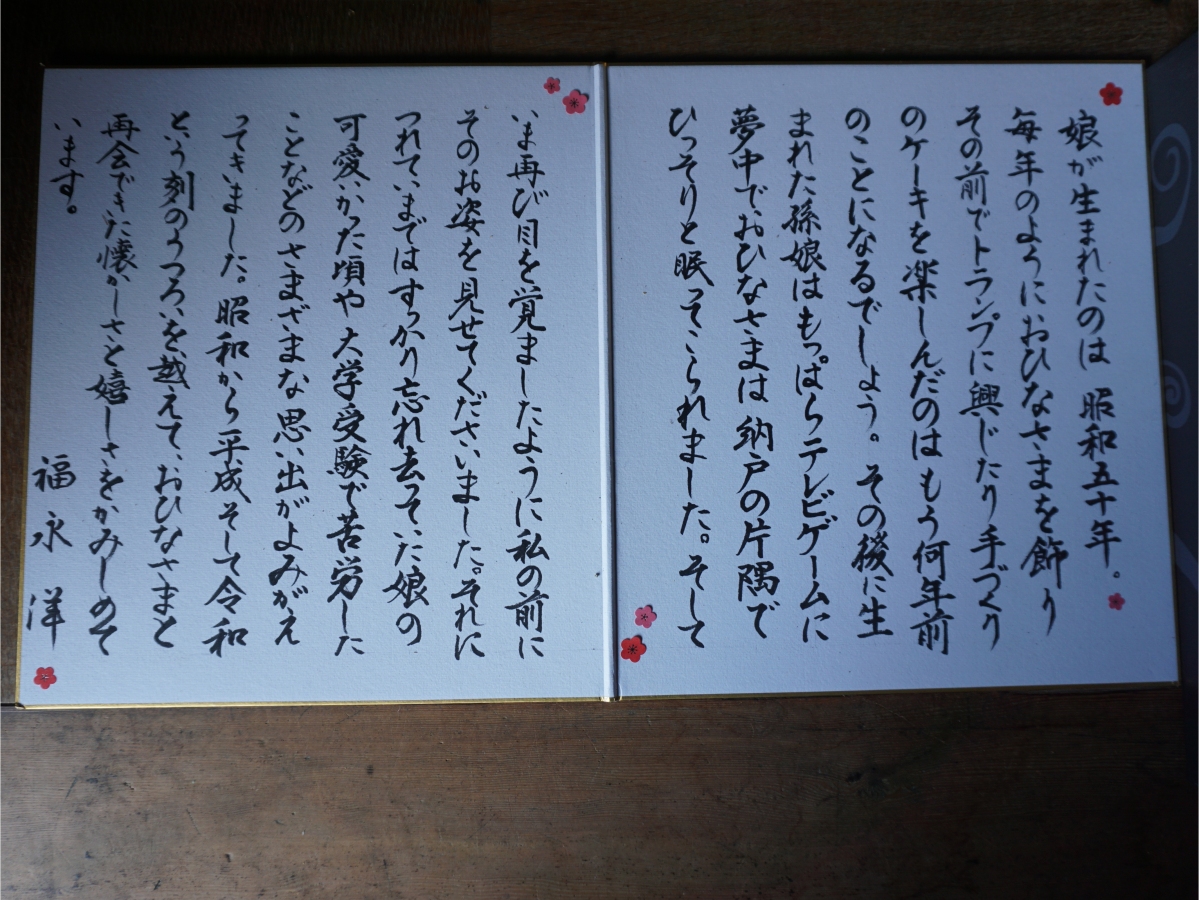 娘が生まれたのは 昭和五十年。
毎年のようにおひなさまを飾り
その前でトランプに興じたり手づくり
のケーキを楽しんだのは もう何年前
のことになるでしょう。その後に生
まれた孫娘はもっぱらテレビゲームに
夢中で、おひなさまは 納戸の片隅で
ひっそりと眠ってこられました。そして
いま再び目を覚ましたように私の前に
そのお姿を見せてくださいました。それに
つれていまではすっかり忘れ去っていた娘の
可愛いかった頃や 大学受験で苦労した
ことなどの さまざまな思い出がよみがえ
ってきました。昭和から平成そして令和
という刻のうつろいを、越えて、おひなさまと
再会できた懐かしさと嬉しさをかみしめて
います。
福永 洋